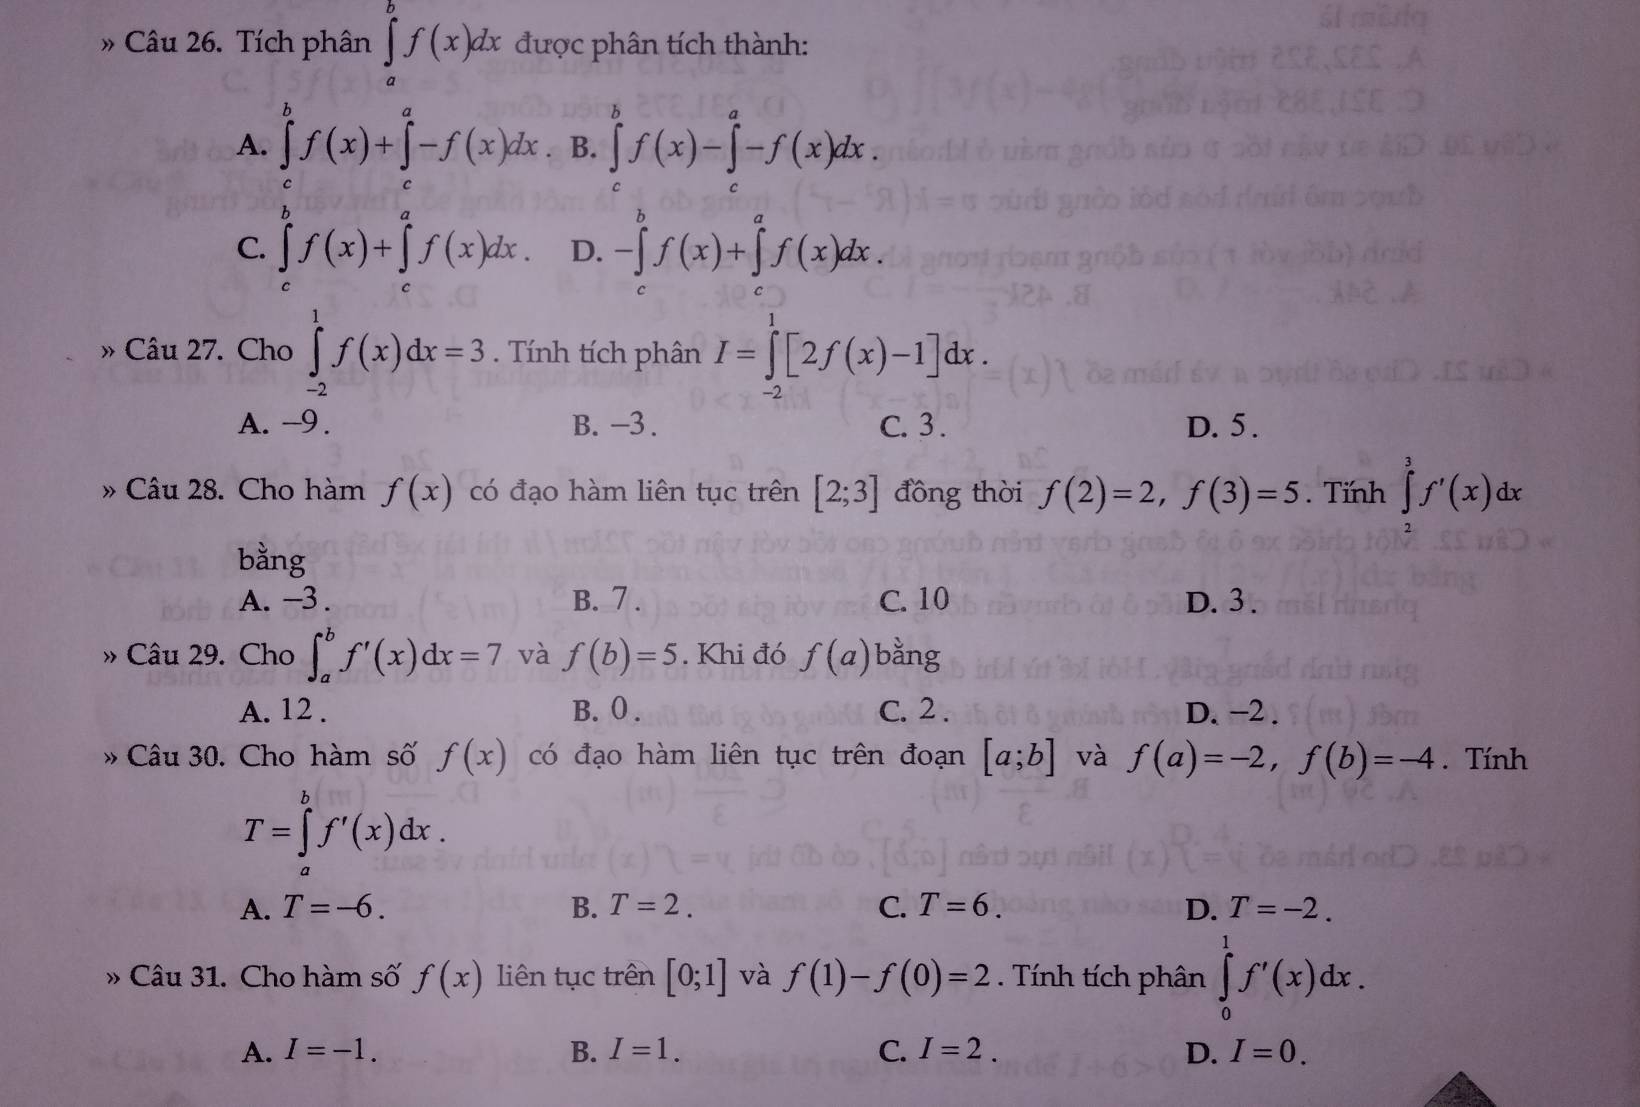 » Câu 26. Tích phân ∫_a^b f(x)dx được phân tích thành:
A. ∫_c^b f(x)+∫_c^a −f(x)dx B. ∫_c^b f(x)−∫_c^a −f(x)dx.
C. ∫_c^b f(x)+∫_c^a f(x)dx. D. −∫_c^b f(x)+∫_c^a f(x)dx.
» Câu 27. Cho ∫_{−2}^1 f(x)dx=3. Tính tích phân I=∫_{−2}^1 [2f(x)−1]dx.
A. −9. B. −3. C. 3. D. 5.
» Câu 28. Cho hàm f(x) có đạo hàm liên tục trên [2;3] đồng thời f(2)=2, f(3)=5. Tính ∫_2^3 f'(x)dx
bằng
A. −3. B. 7. C. 10 D. 3.
» Câu 29. Cho ∫_a^b f'(x)dx=7 và f(b)=5. Khi đó f(a) bằng
A. 12. B. 0. C. 2. D. −2.
» Câu 30. Cho hàm số f(x) có đạo hàm liên tục trên đoạn [a;b] và f(a)=−2, f(b)=−4. Tính
T=∫_a^b f'(x)dx.
A. T=−6. B. T=2. C. T=6. D. T=−2.
» Câu 31. Cho hàm số f(x) liên tục trên [0;1] và f(1)−f(0)=2. Tính tích phân ∫_0^1 f'(x)dx.
A. I=−1. B. I=1. C. I=2. D. I=0.